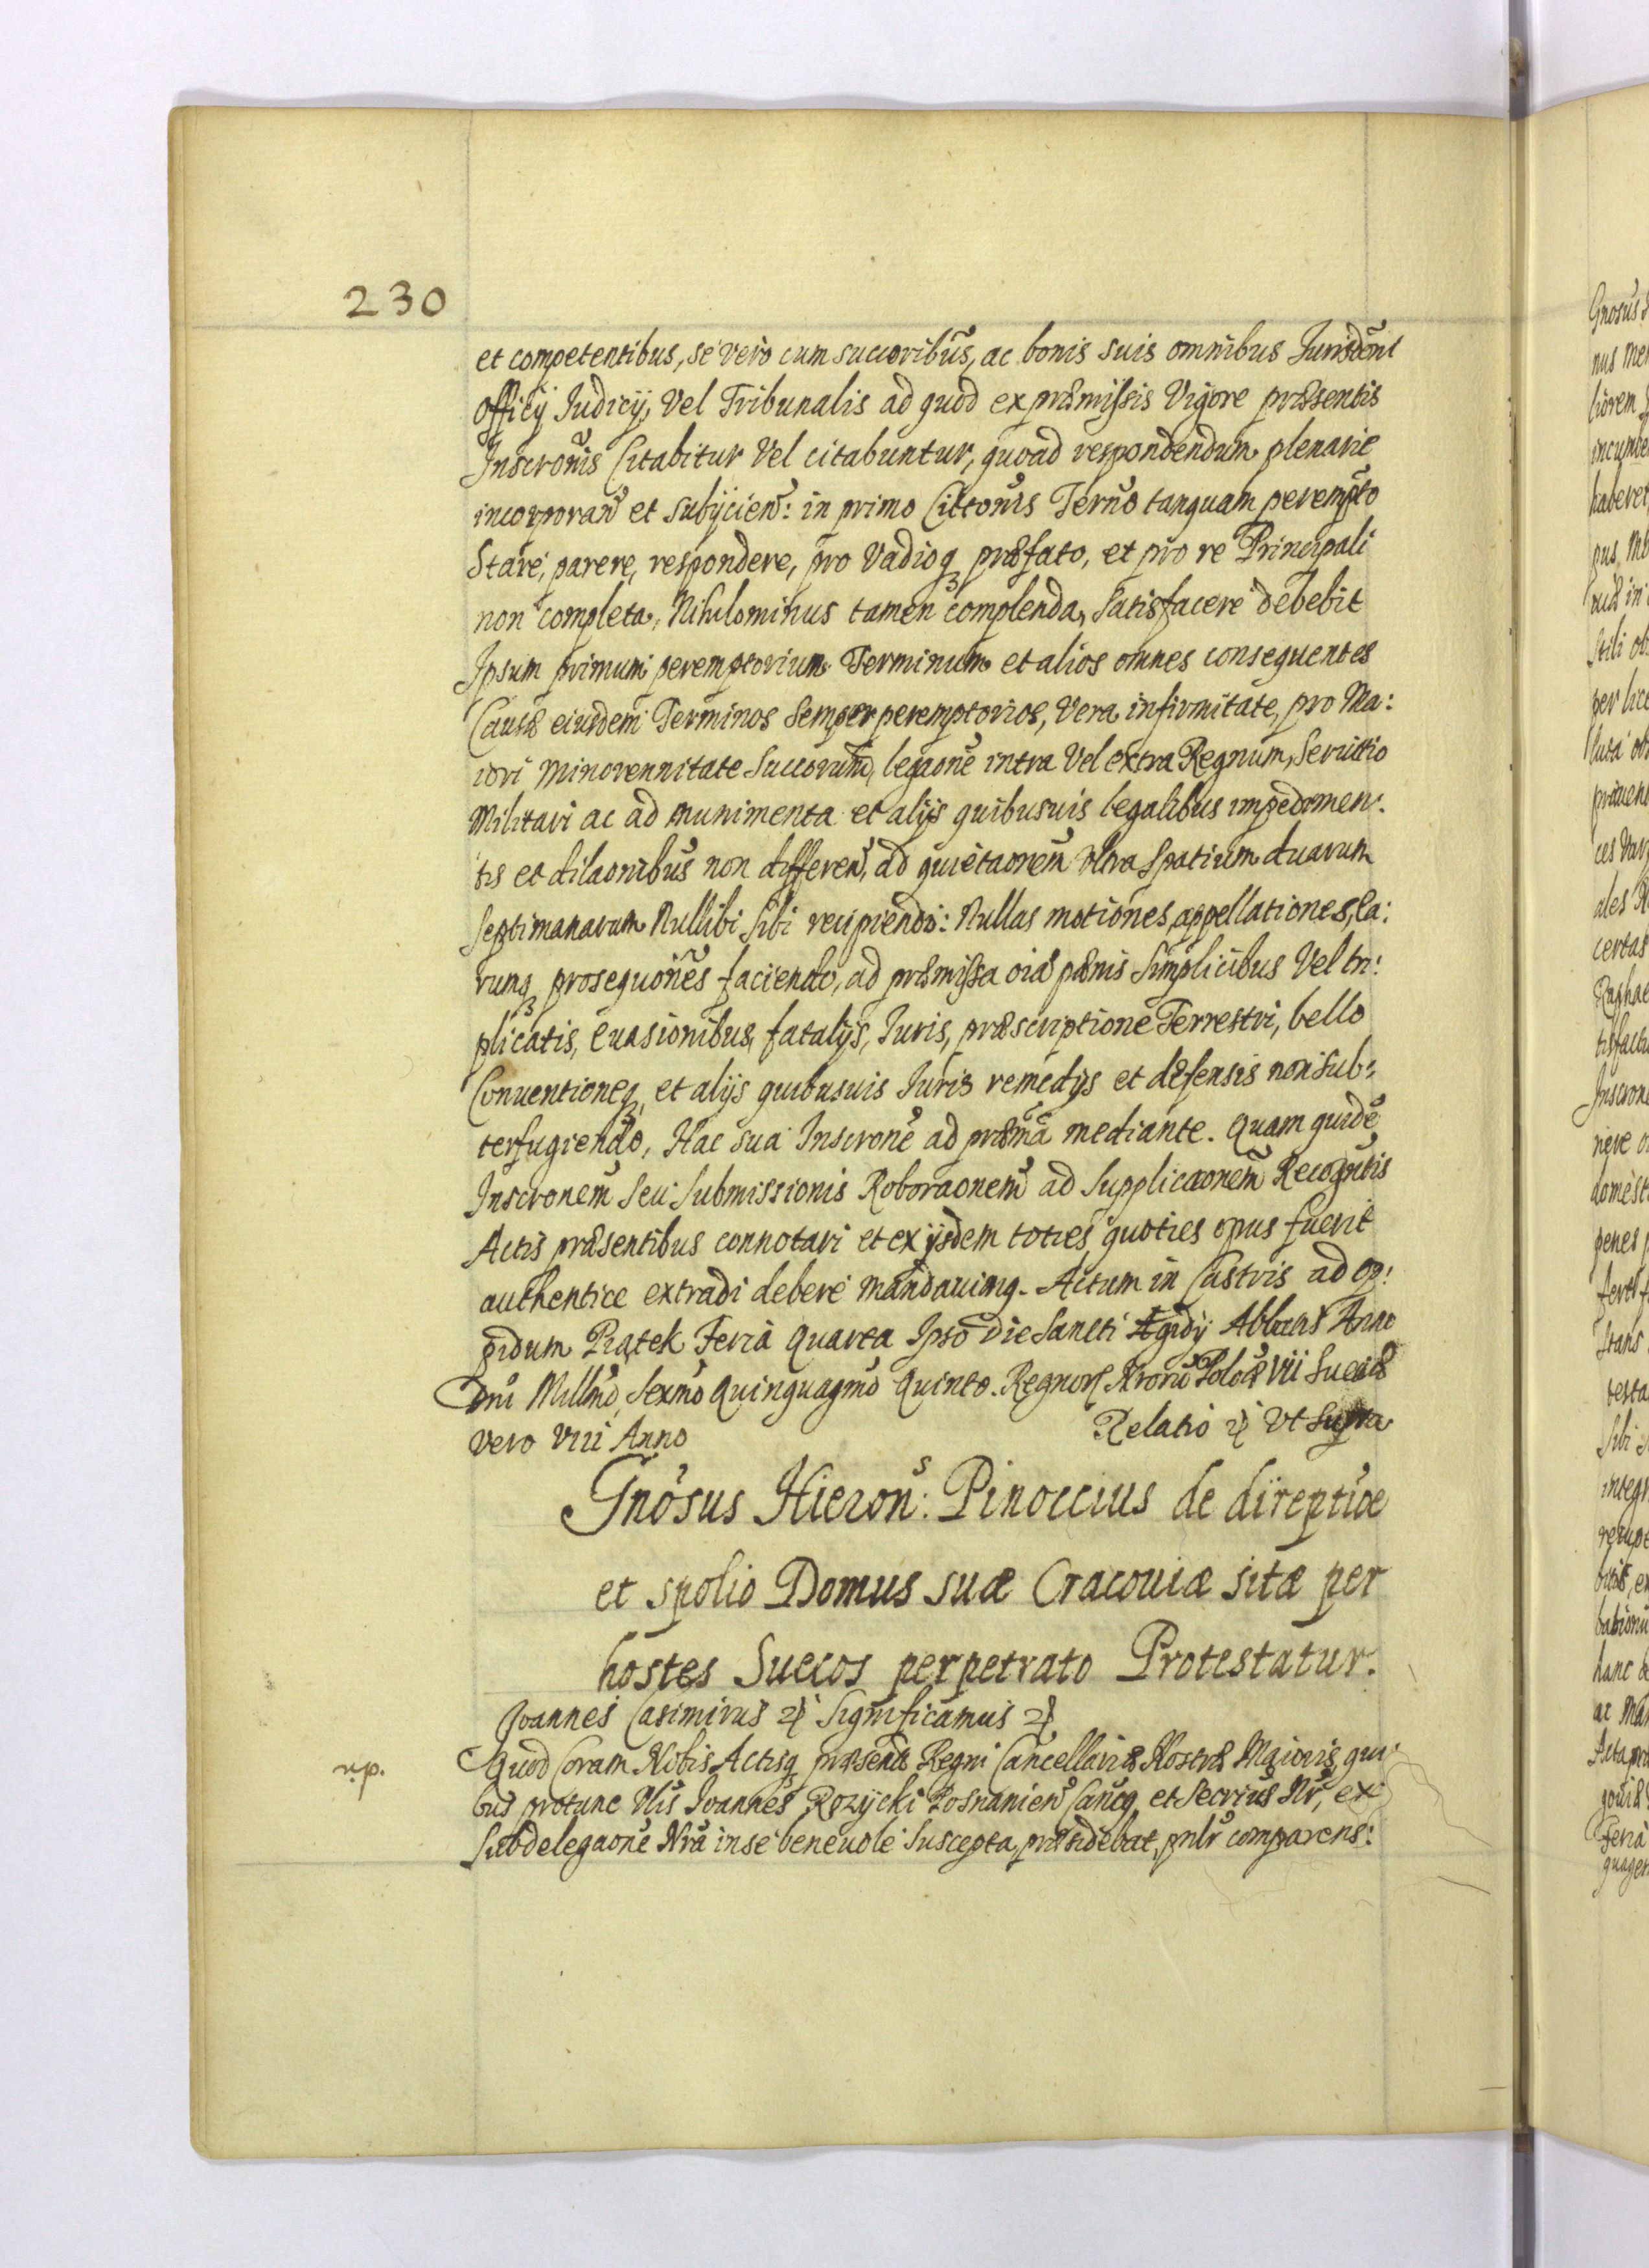 230
et competentibus, se vero cum succoribus, ac bonis suis omnibus Jurisdoni
officij Judicij, Vel Tribunalis ad quod ex præmissis Vigore præsentis
Inscronis Citabitur Vel citabuntur, quoad respondendum plenarie
incorporan̄ et subijcien̄: in primo Cittonis Terno tanquam perempto
Stare, parere, respondere, pro Vadioq præfato, et pro re Principali
non completa, Nihilominus tamen complenda, Satisfacere debebit
Ipsum primum peremptorium Terminum et alios omnes consequentes
Causæ eiusdem Terminos Semper peremptorios, Vera infirmitate, pro Ma:
iori Minorennitate Succorum, legaone intra Vel extra Regnum, Seruitio
Militari ac ad munimenta et alijs quibusuis legalibus impedimen:
tis et dilaonibus non differen̄, ad quietaonem Vltra Spatium duarum
Septimanarum Nullibi Sibi recipiendo: Nullas motiones, appellationes, ea:
rumq prosequoines faciendo, ad præmissa oia pænis Simplicibus Vel tri:
plicatis, euasionibus, fatalijs, Juris, præscriptione Terrestri, bello
Conuentioneq, et alijs quibusuis Juris remedijs et defensis non sub:
terfugiendo, Hac sua Inscrone ad præmā mediante. Quam quidē
Inscronem Seu Submissionis Roboraonem ad Supplicaonem Recogntis
Actis præsentibus connotari et ex ijsdem toties, quoties opus fuerit
authentice extradi debere mandauimq. Actum in Castris ad Op:
pidum Piątek Feria Quarta Ipso die Sancti Ægidij Abbatis Anno
Dni Millmo, Sexmo Quinquagmo Quinto. Regnorum Nrorū Poloæ VII Sueciæ
vero VIII Anno Relatio ꝛ Vt Supra
Gnosus Hieron: Pinoccius de direptioe
et spolio Domus suæ Cracouiæ sitæ per
hostes Suecos perpetrato Protestatur.
Joannes Casimirus ꝛ Significamus ꝛ
Quod Coram Nobis Actisq præsentibus Regni Cancellariæ Nostræ Maioris, qui:
bus protunc Vlis Joannes Rozycki Posnanien̄ Cancq et Secrius Nr, ex
Subdelegaone Nra in se beneuole Suscepta præsidebat, pnlr comparens: